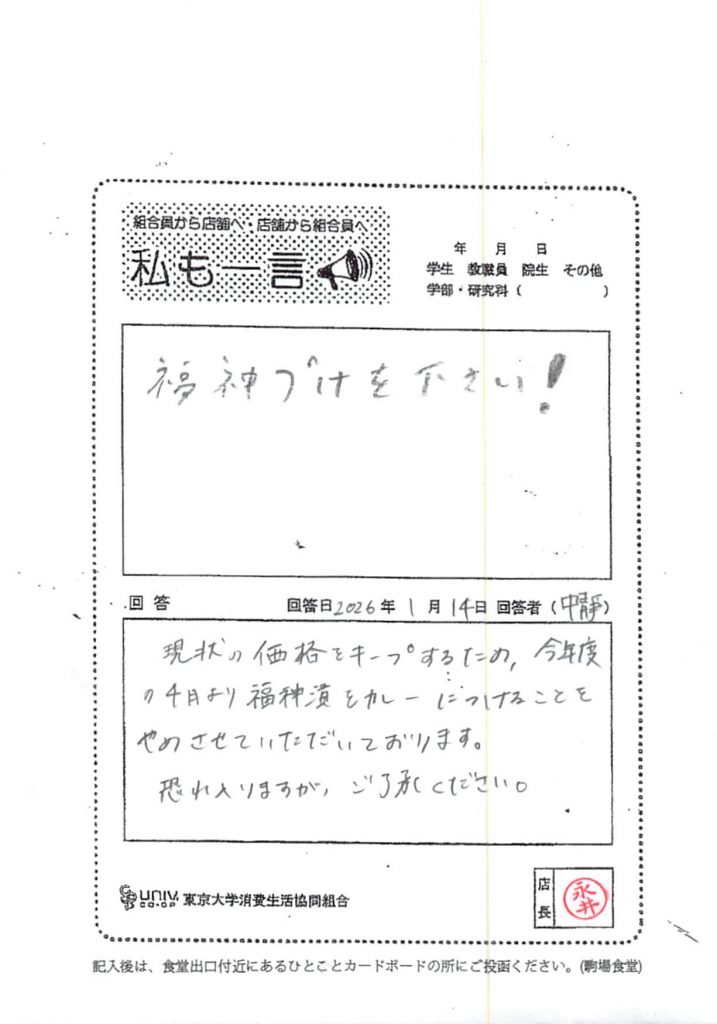 組合員から店舗へ・店舗から組合員へ
私も一言
年 月 日
学生 教職員 院生 その他
学部・研究科( )
福神づけを下さい!
回答 回答日2026年1月14日 回答者(中靜)
現状の価格をキープするため、今年度
の4月より福神漬をカレーにつけることを
やめさせていただいております。
恐れ入りますが、ご了承ください。
UNIV.
CO-OP
東京大学消費生活協同組合
店長
永井
記入後は、食堂出口付近にあるひとことカードボードの所にご投函ください。(駒場食堂)